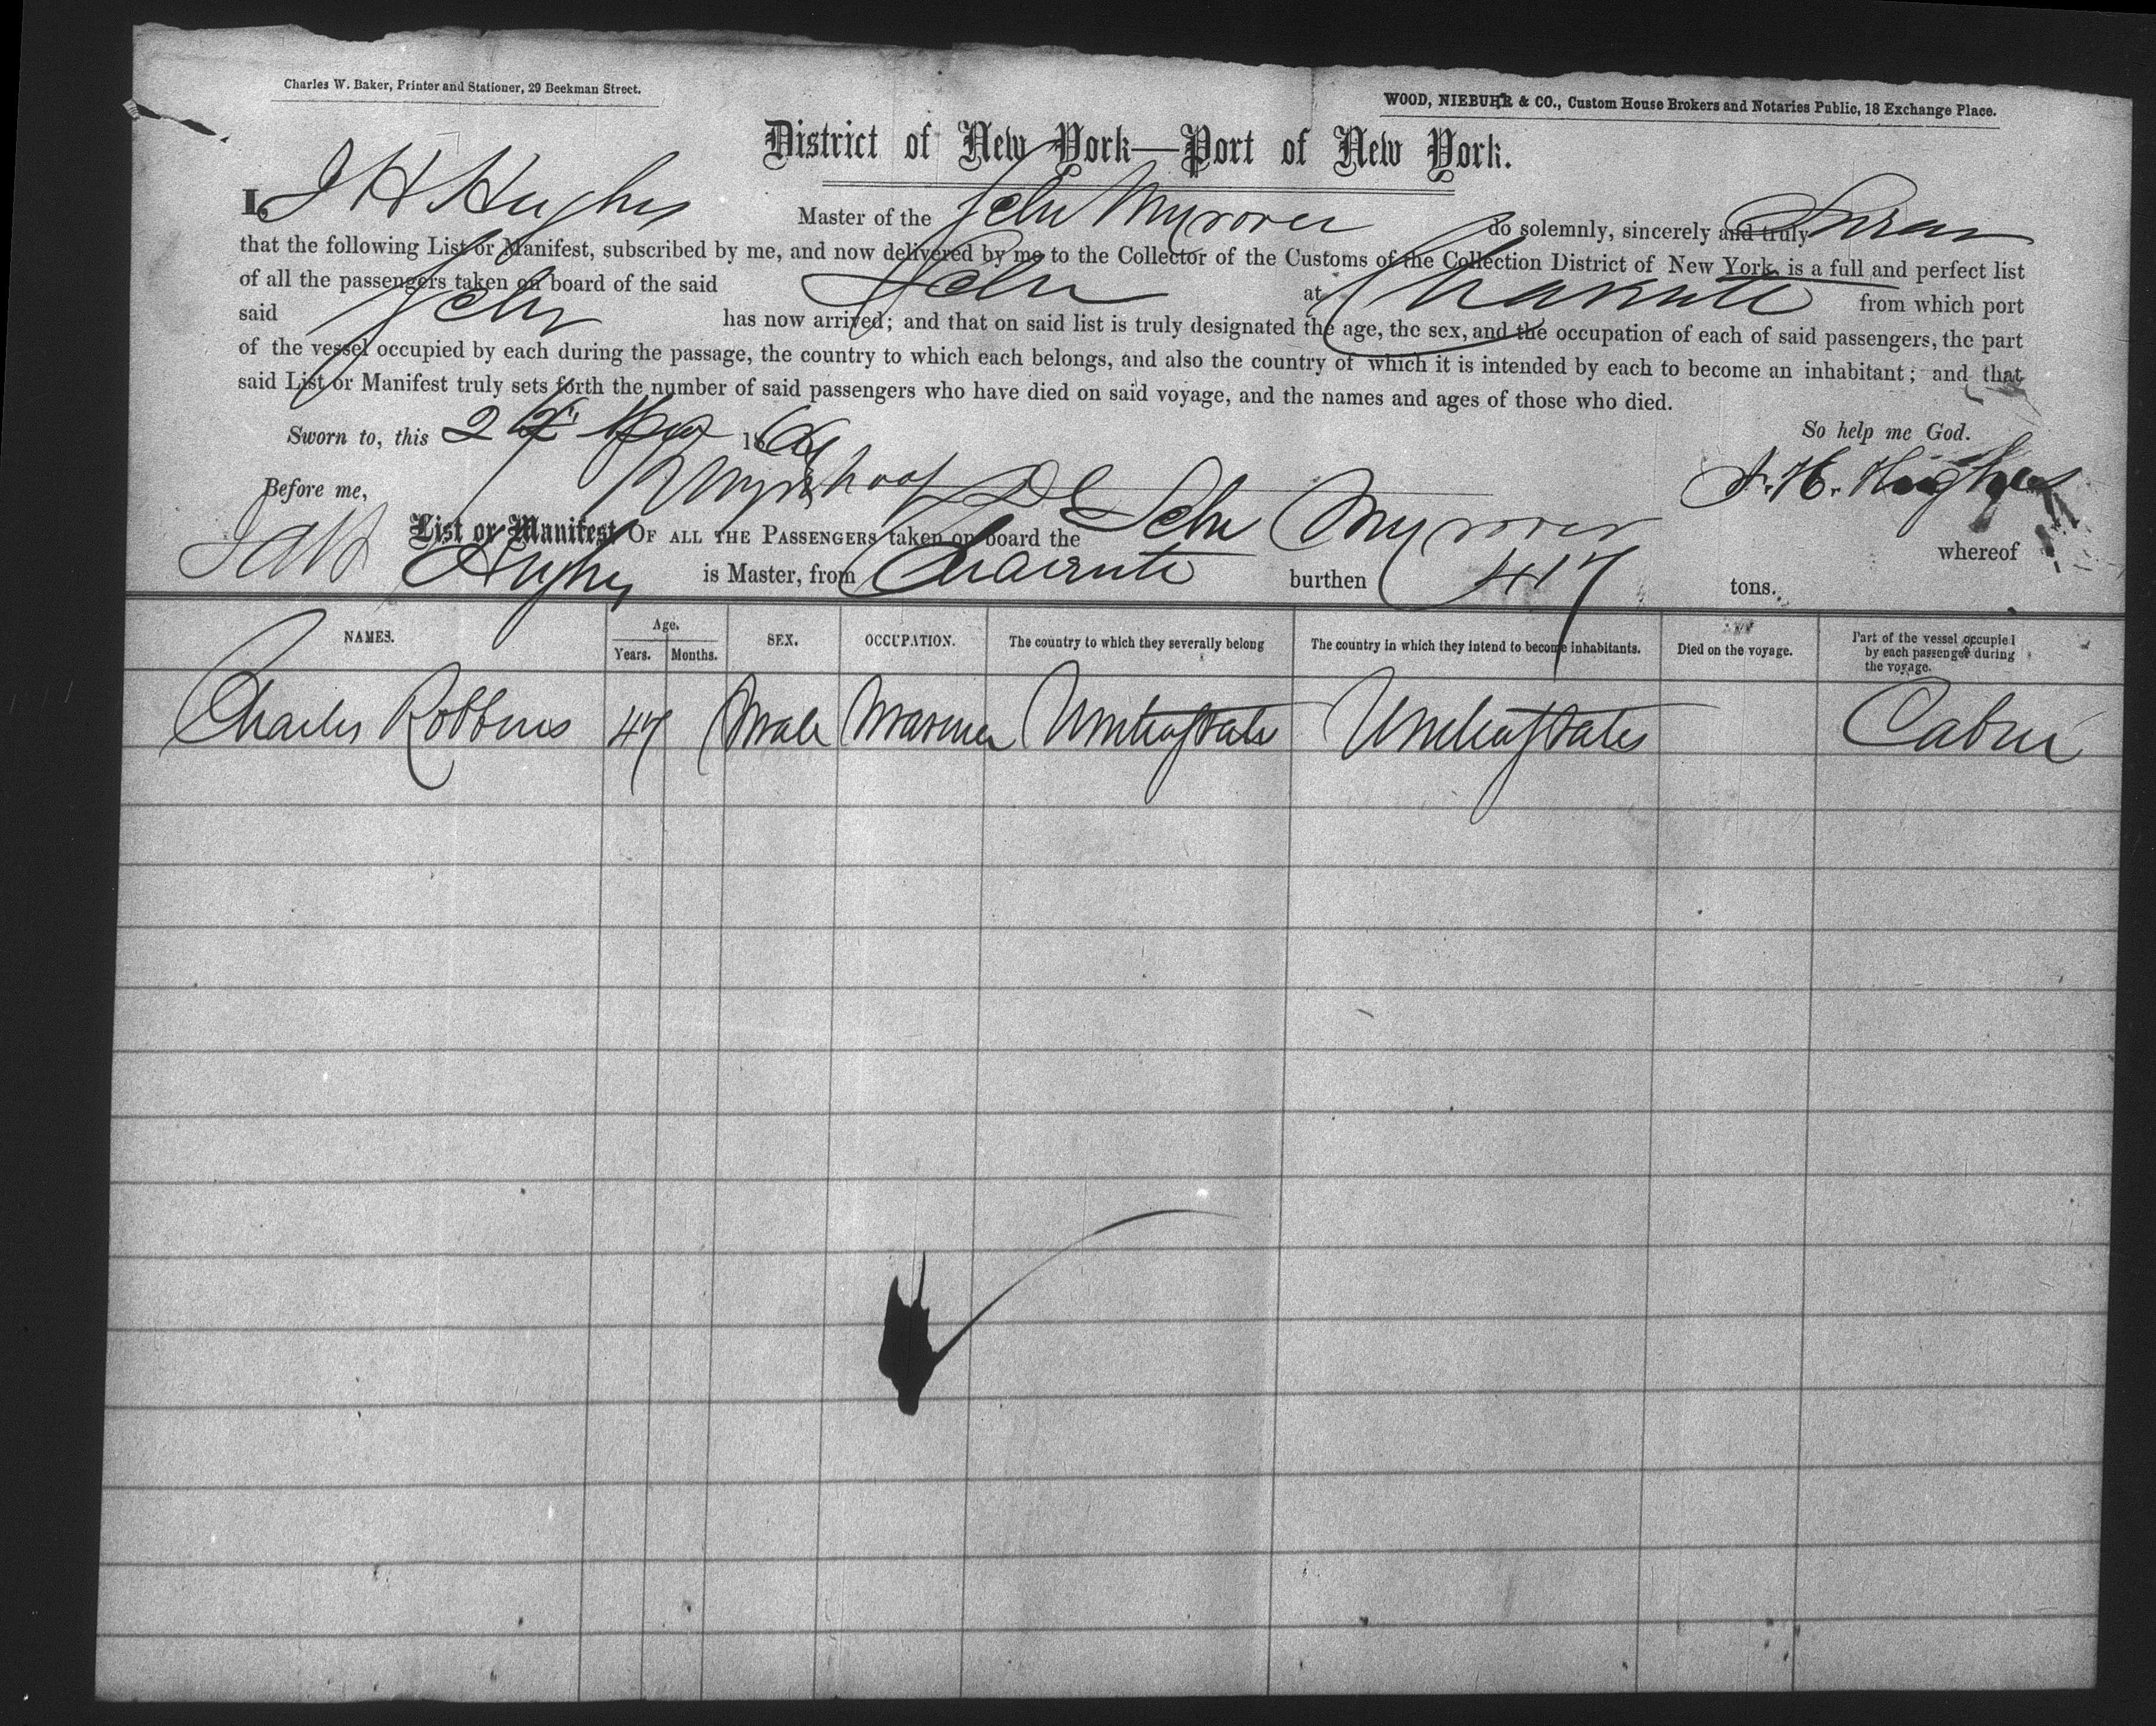 Charles W. Baker, Printer and Stationer, 29 Beekman Street.
WOOD, NIEBUHR & CO., Custom House Brokers and Notaries Public, 18 Exchange Place.
District of New York—Port of New York.
I, J H Hughes Master of the Schr Myrover do solemnly, sincerely and truly Swear
that the following List or Manifest, subscribed by me, and now delivered by me to the Collector of the Customs of the Collection District of New York, is a full and perfect list
of all the passengers taken on board of the said Schr at from which port
said Schr has now arrived; and that on said list is truly designated the age, the sex, and the occupation of each of said passengers, the part
of the vessel occupied by each during the passage, the country to which each belongs, and also the country of which it is intended by each to become an inhabitant; and that
said List or Manifest truly sets forth the number of said passengers who have died on said voyage, and the names and ages of those who died.
Sworn to, this 186 So help me God.
Before me, J. H. Hughes
List or Manifest OF ALL THE PASSENGERS taken on board the Schr Myrover whereof
Hughes is Master, from burthen 417 tons.
NAMES. Age. Years. Months. SEX. OCCUPATION. The country to which they severally belong The country in which they intend to become inhabitants. Died on the voyage. Part of the vessel occupied by each passenger during the voyage.
Charles Robbins 47 Male Mariner United States United States Cabin